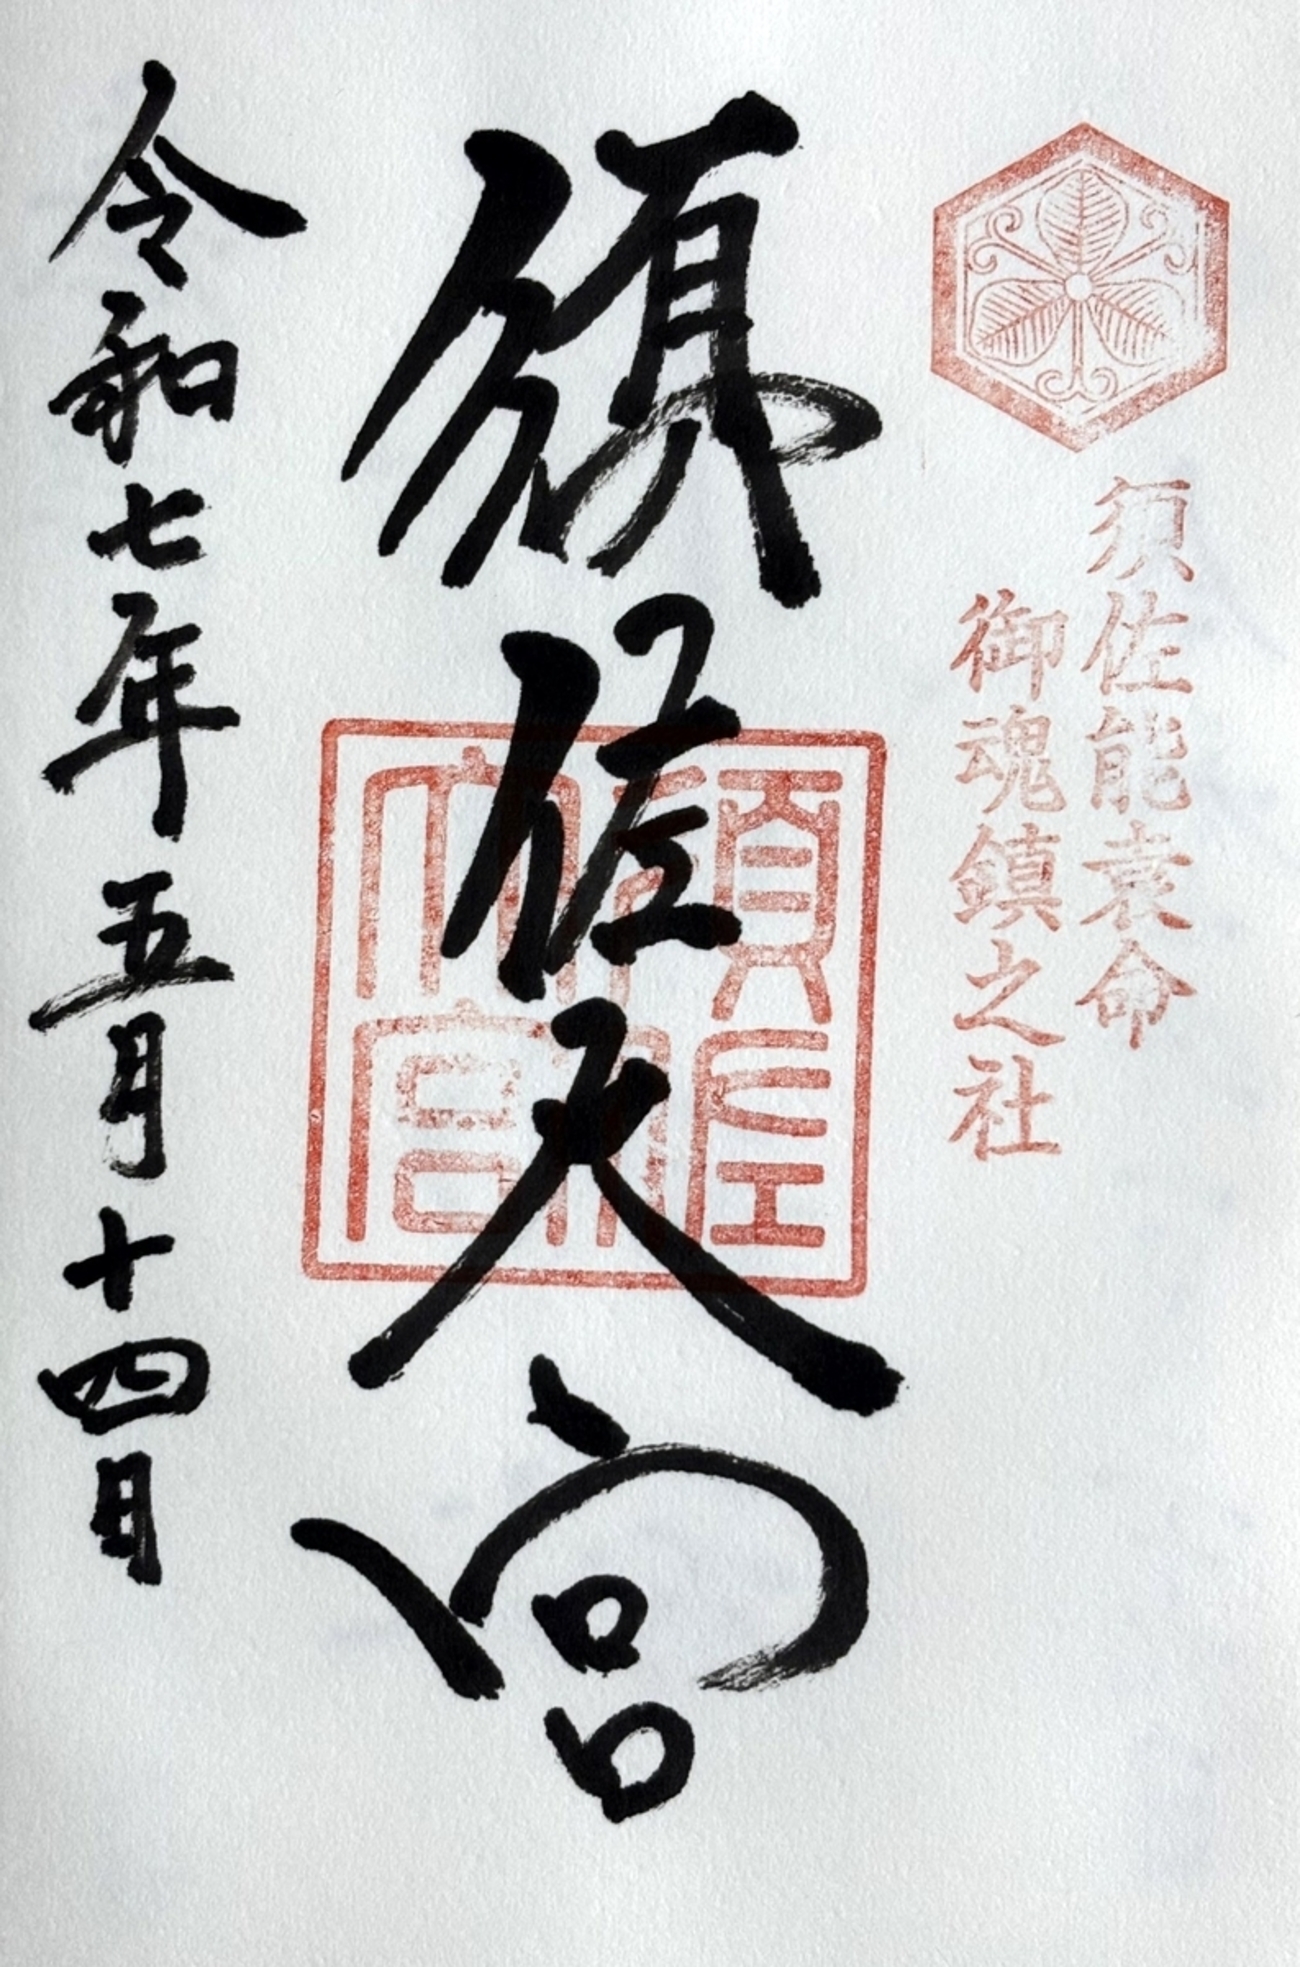 須佐能袁命
御魂鎮之社
須佐大宮
須佐神社
令和七年五月十四日